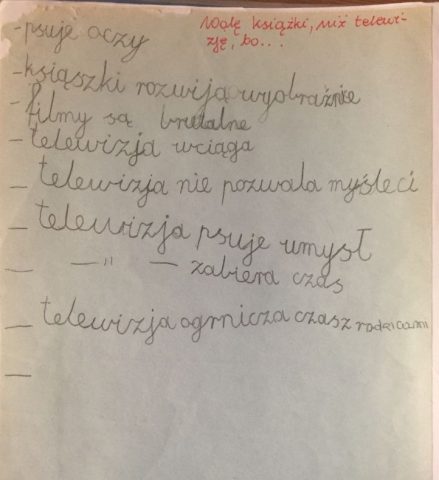 Wolę książki, niż telewi-
zję, bo...
- psuje oczy
- książszki rozwija wyobraźnie
- filmy są brutalne
- telewizja wciąga
- telewizja nie pozwala myśleci
- telewizja psuje umysł
- —„— zabiera czas
- telewizja ogrnicza czas z rodzicami
-